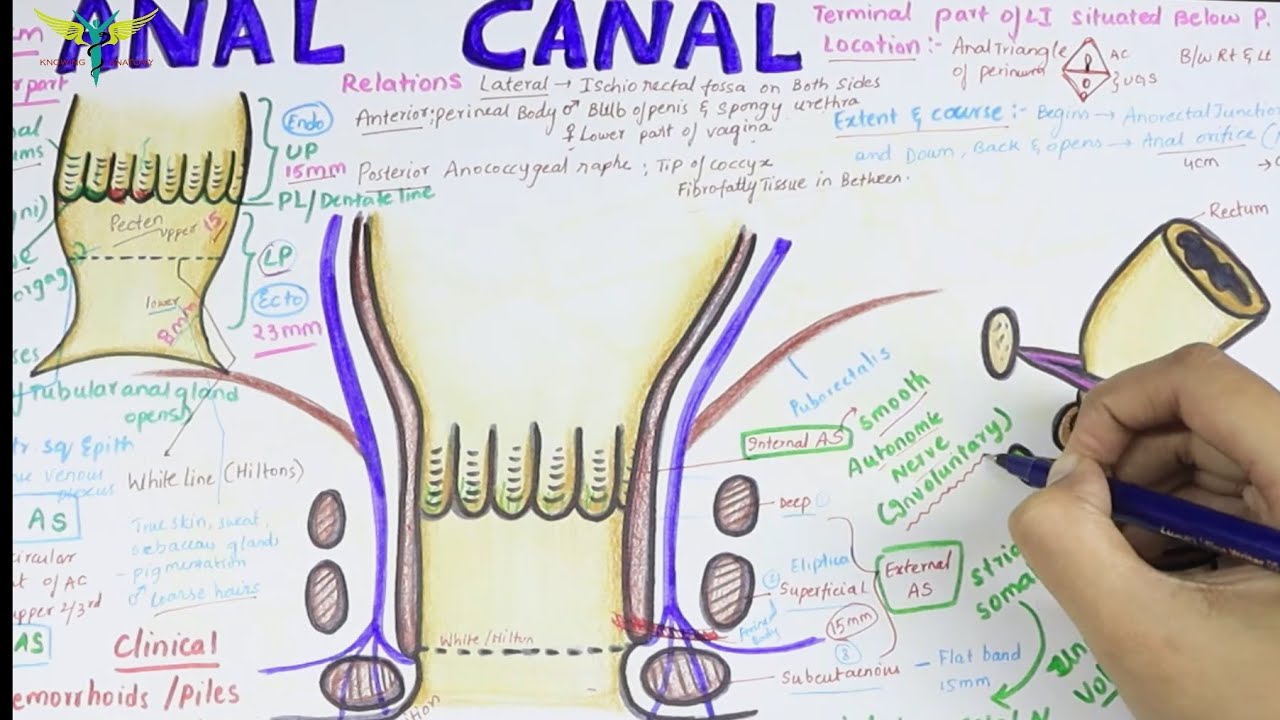 ANAL CANAL
KNOWING ANATOMY
Terminal part of LI situated Below P.
Location :- Anal Triangle
of perineum
AC
UGS
B/w Rt & Lt
part
Relations Lateral → Ischiorectal fossa on Both sides
Anterior: perineal Body ♂ Bulb of penis & spongy urethra
♀ Lower part of vagina
Posterior Anococcygeal raphe ; Tip of coccyx
Fibrofatty Tissue in Between.
Extent & course :- Begins → Anorectal Junction
and Down, Back & opens → Anal orifice
4cm
Endo
UP
15mm
PL/Dentate line
Pecten
upper 15
lower
8mm
LP
Ecto
23mm
Rectum
Tubular anal gland
opens
sq Epith
venous
plexus
White line (Hiltons)
AS
True skin, sweat,
sebaccous glands
- pigmentation
♂ coarse hairs
circular
of AC
upper 2/3rd
AS
Clinical
emorrhoids / Piles
Puborectalis
Internal AS
smooth
Autonomic
Nerve
(Involuntary)
Deep
Eliptical
Superficial
15mm
Perineal
Body
Subcutaneous
Flat band
15mm
External
AS
White/Hilton